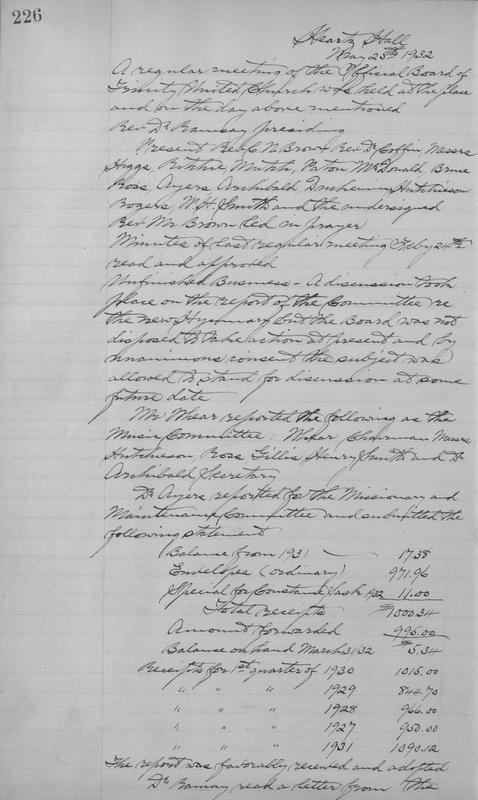 226
Heartz Hall
May 25th 1932
A regular meeting of the Official Board of
Trinity United Church was held at the place
and on the day above mentioned
Rev Dr Ramsay presiding
Present Rev C N Brown Rev Dr Coffin, Messrs
Higgs, Ritchie, Mutch, Paton McDonald, Bruce
Ross, Ayers Archibald Hutchieson
Rogers W H Smith and the undersigned
Rev Mr Brown led in prayer
Minutes of last regular meeting Feby 24th
read and approved
Unfinished Business - A discussion took
place on the report of the Committee re
the new Hymnary but the Board was not
disposed to take action at present and by
unanimous consent the subject was
allowed to stand for discussion at some
future date
Mr Whear reported the following as the
Music Committee: Whear, Chairman Messrs
Hutchieson Ross Gillis, Henry Smith and Dr
Archibald, Secretary
Dr Ayers reported for the Missionary and
Maintenance Committee and submitted the
following statement
Balance from 1931 — 17.38
Envelopes (ordinary) 971.96
Special for Constance 1932 11.00
Total receipts $1000.34
Amount forwarded 995.00
Balance on hand March 31/32 $5.34
Receipts for 1st quarter of 1930 1015.00
" " " 1929 844.70
" " " 1928 966.00
" " " 1927 950.00
" " " 1931 1090.12
The report was favorably received and adopted
Dr Ramsay read a letter from the